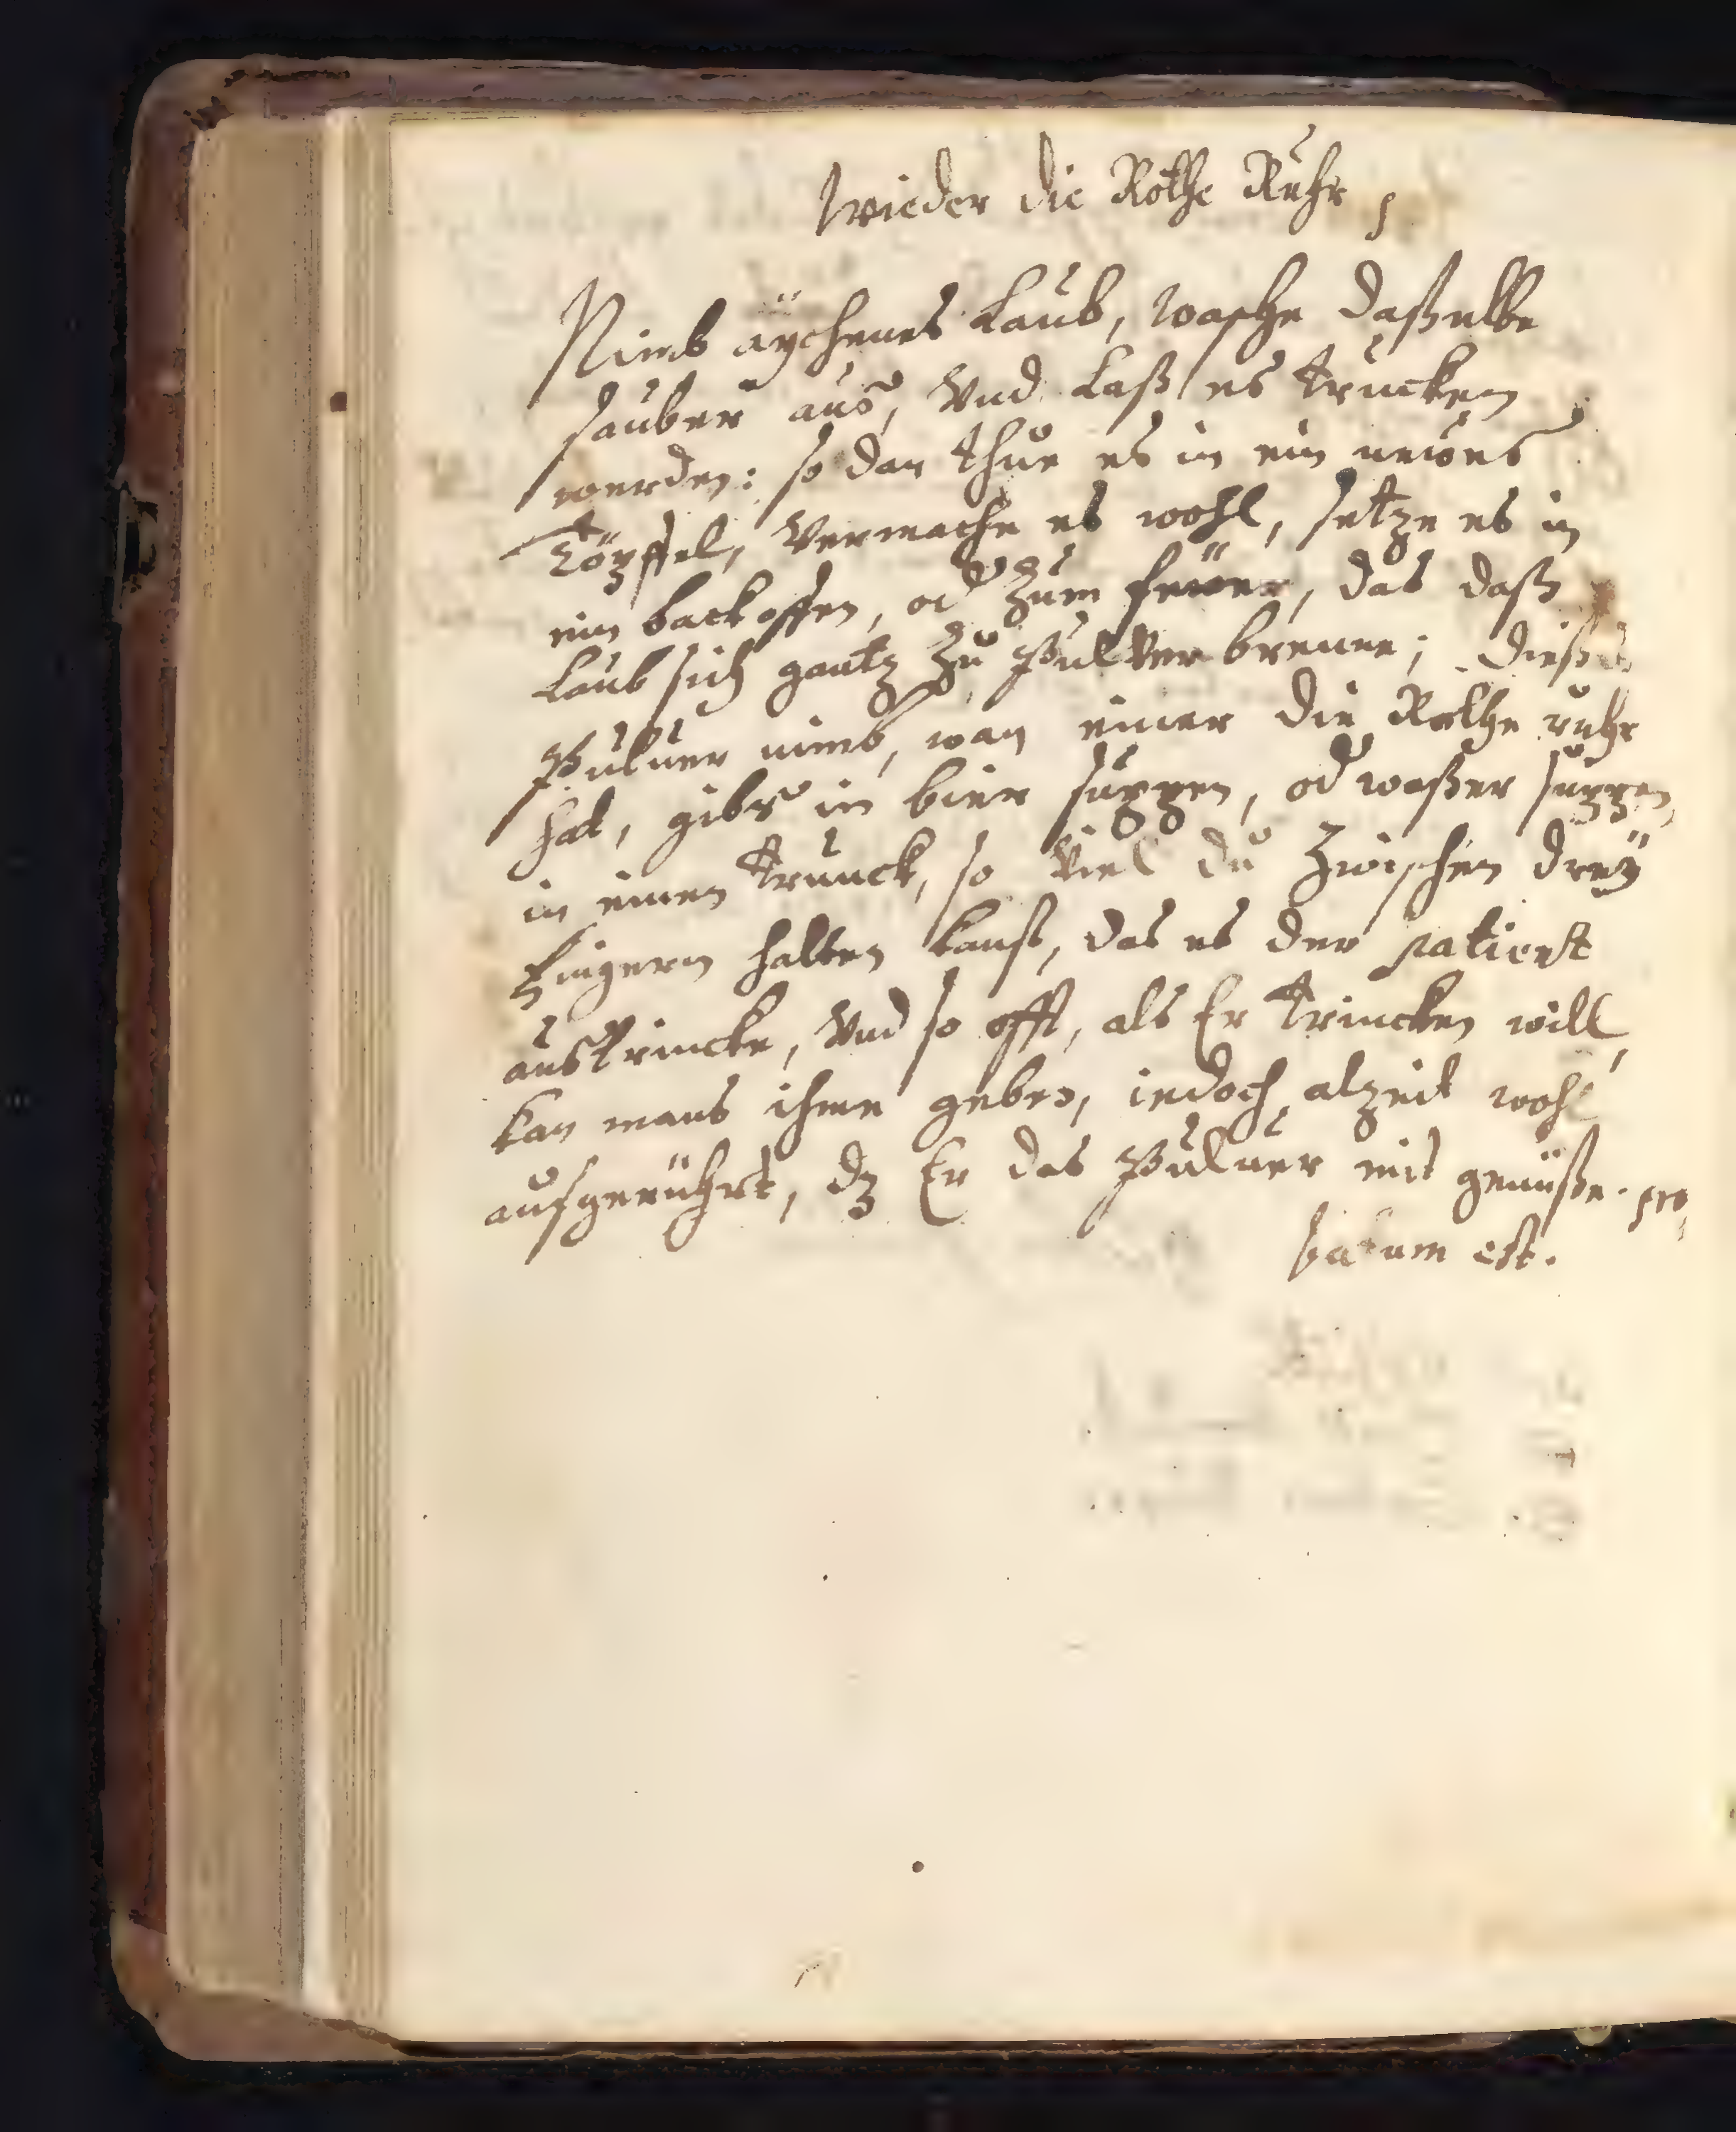 Wieder die Rothe Ruhr
Nimb aychenes Laub, wasche daßelbe
sauber aus, Vnd Laß es trucken
werden: so dan thue es in ein newes
Töpffel, Vermache es wohl, setze es in
ein backoffen, od Zum fewer, das daß
Laub sich gantz Zu Pulver brenne; dießes
Pulver nimb, wan einer die Rothe ruhr
hat, gibs in bier suppen, od waßer suppen,
in einen trunck, so Viel du Zwischen dreÿ
fingern halten kanst, das es der patient
austrincke, Vnd so offt, als Er trincken will,
kan mans ihme geben, iedoch alzeit wohl
aufgerührt, dz Er das Pulver mit genüße. pro,
batum est.